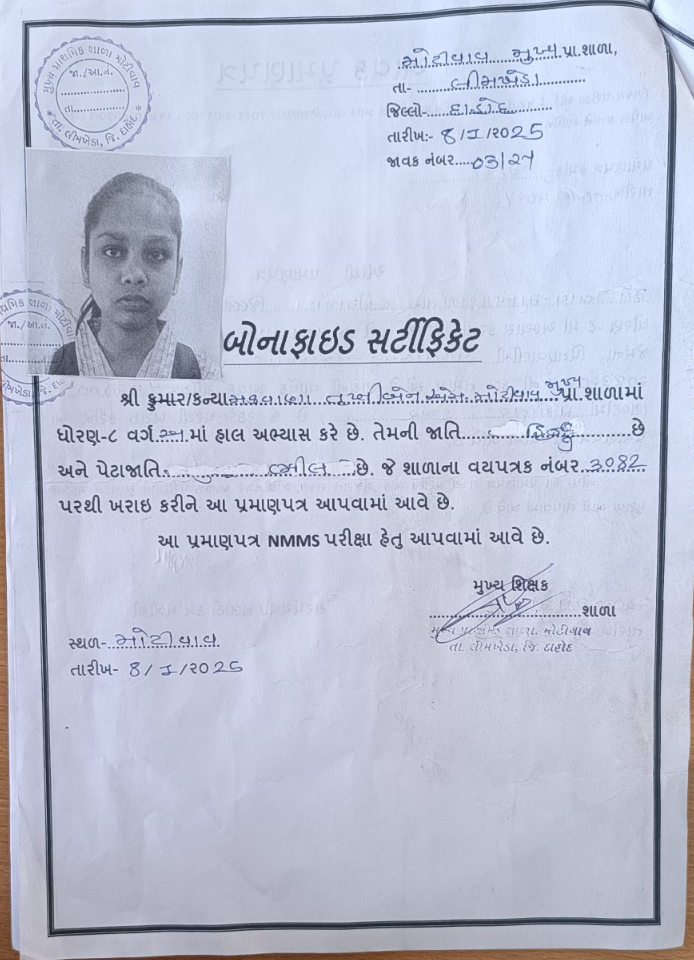 મુખ્ય પ્રાથમિક શાળા મોટીવાવ
જા./આ.નં.
તા.
તા. લીમખેડા, જિ. દાહોદ
મોટીવાવ મુખ્ય પ્રા.શાળા,
તા- લીમખેડા
જિલ્લો- દાહોદ
તારીખ:- 8/1/2025
જાવક નંબર.....03/24
બોનાફાઇડ સર્ટીફિકેટ
મુખ્ય
શ્રી કુમાર/કન્યા મોટીવાવ પ્રા.શાળામાં
ધોરણ-૮ વર્ગ.અ.માં હાલ અભ્યાસ કરે છે. તેમની જાતિ હિન્દુ છે
અને પેટાજાતિ ભીલ છે. જે શાળાના વયપત્રક નંબર 3082
પરથી ખરાઇ કરીને આ પ્રમાણપત્ર આપવામાં આવે છે.
આ પ્રમાણપત્ર NMMS પરીક્ષા હેતુ આપવામાં આવે છે.
મુખ્ય શિક્ષક
શાળા
મુખ્ય પ્રાથમિક શાળા. મોટીવાવ
તા. લીમખેડા, જિ. દાહોદ
સ્થળ- મોટીવાવ
તારીખ- 8/1/2025